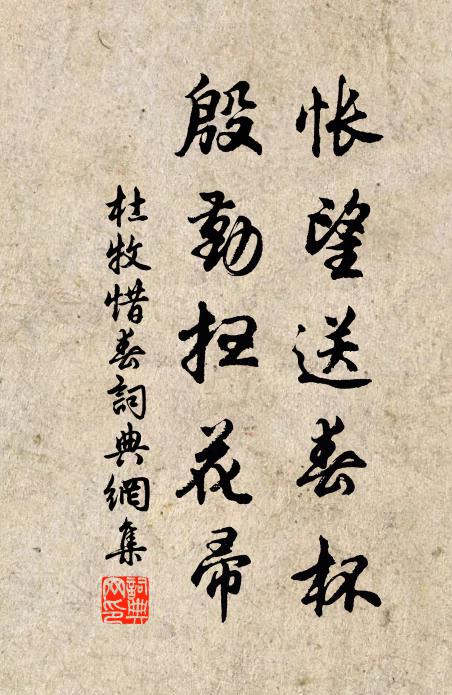 怅望送春杯
殷勤扫花帚
杜牧惜春詞典網集
詞典网印